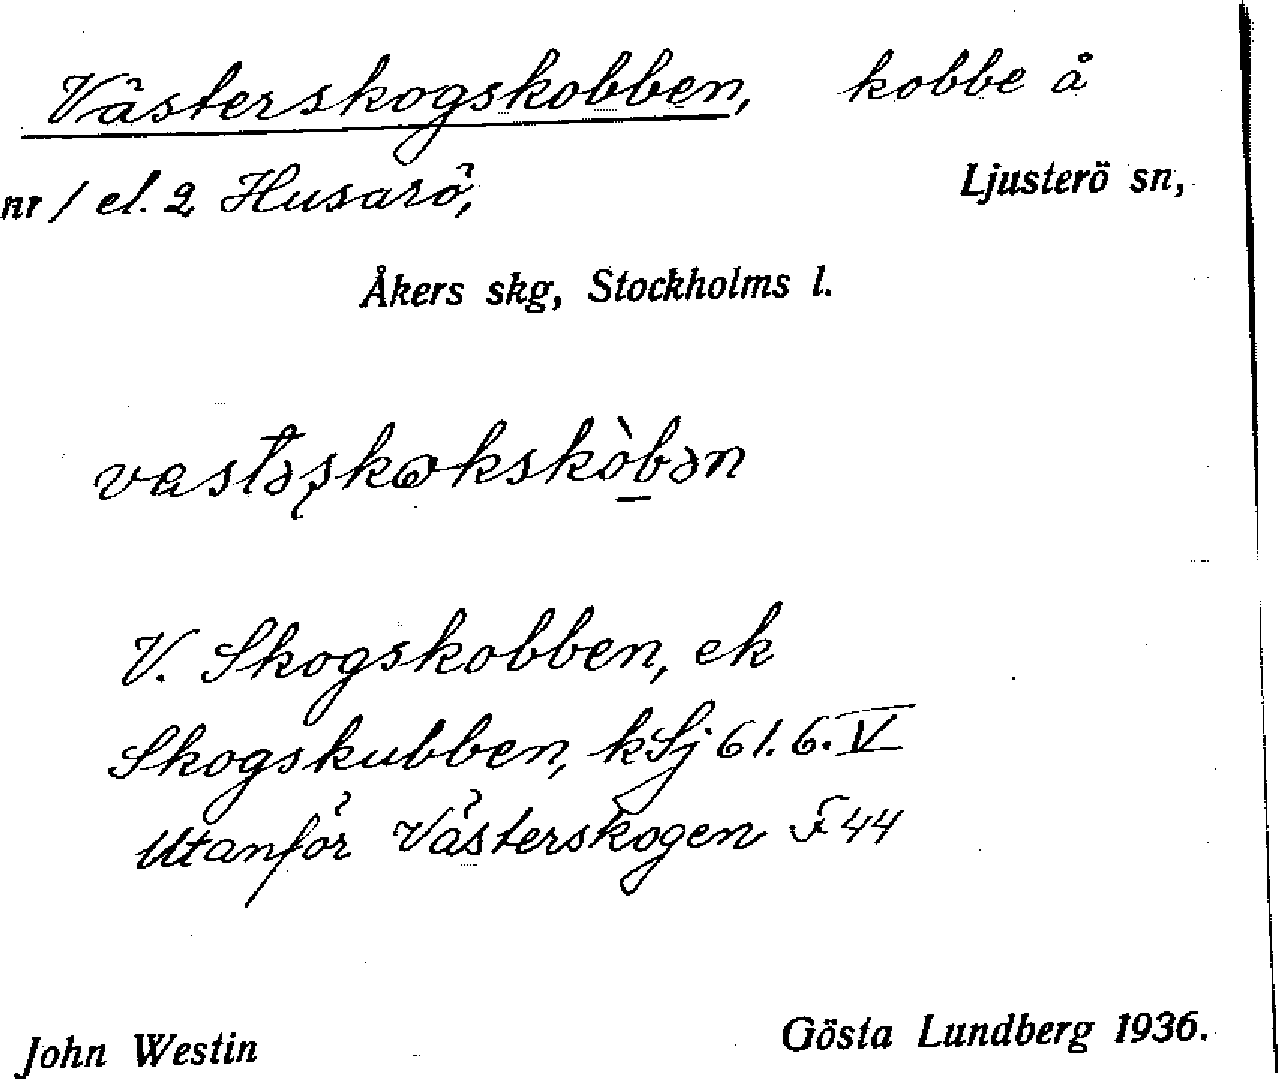 Västerskogskobben, kobbe å
nr 1 el. 2 Husarö, Ljusterö sn,
Åkers skg, Stockholms l.
vastəʂkɷkskòbən
V. Skogskobben, ek
Skogskubben, kSj 61. 6. V
Utanför Västerskogen F 44
John Westin Gösta Lundberg 1936.